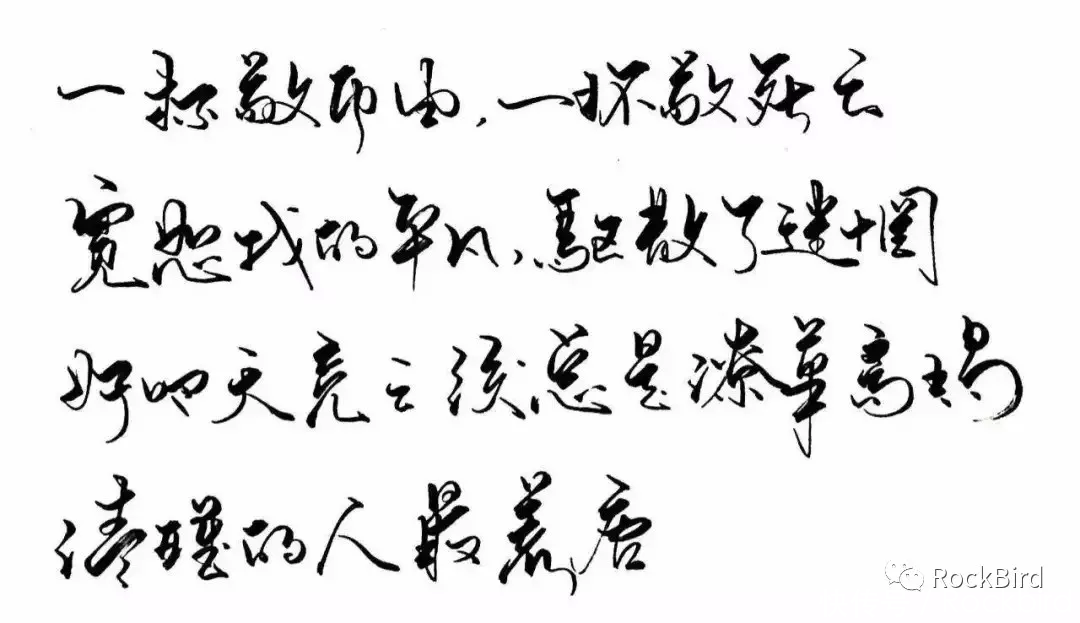 一杯敬自由，一杯敬死亡
宽恕我的平凡，驱散了迷惘
好吧天亮之後总是潦草离场
清醒的人最荒唐
RockBird